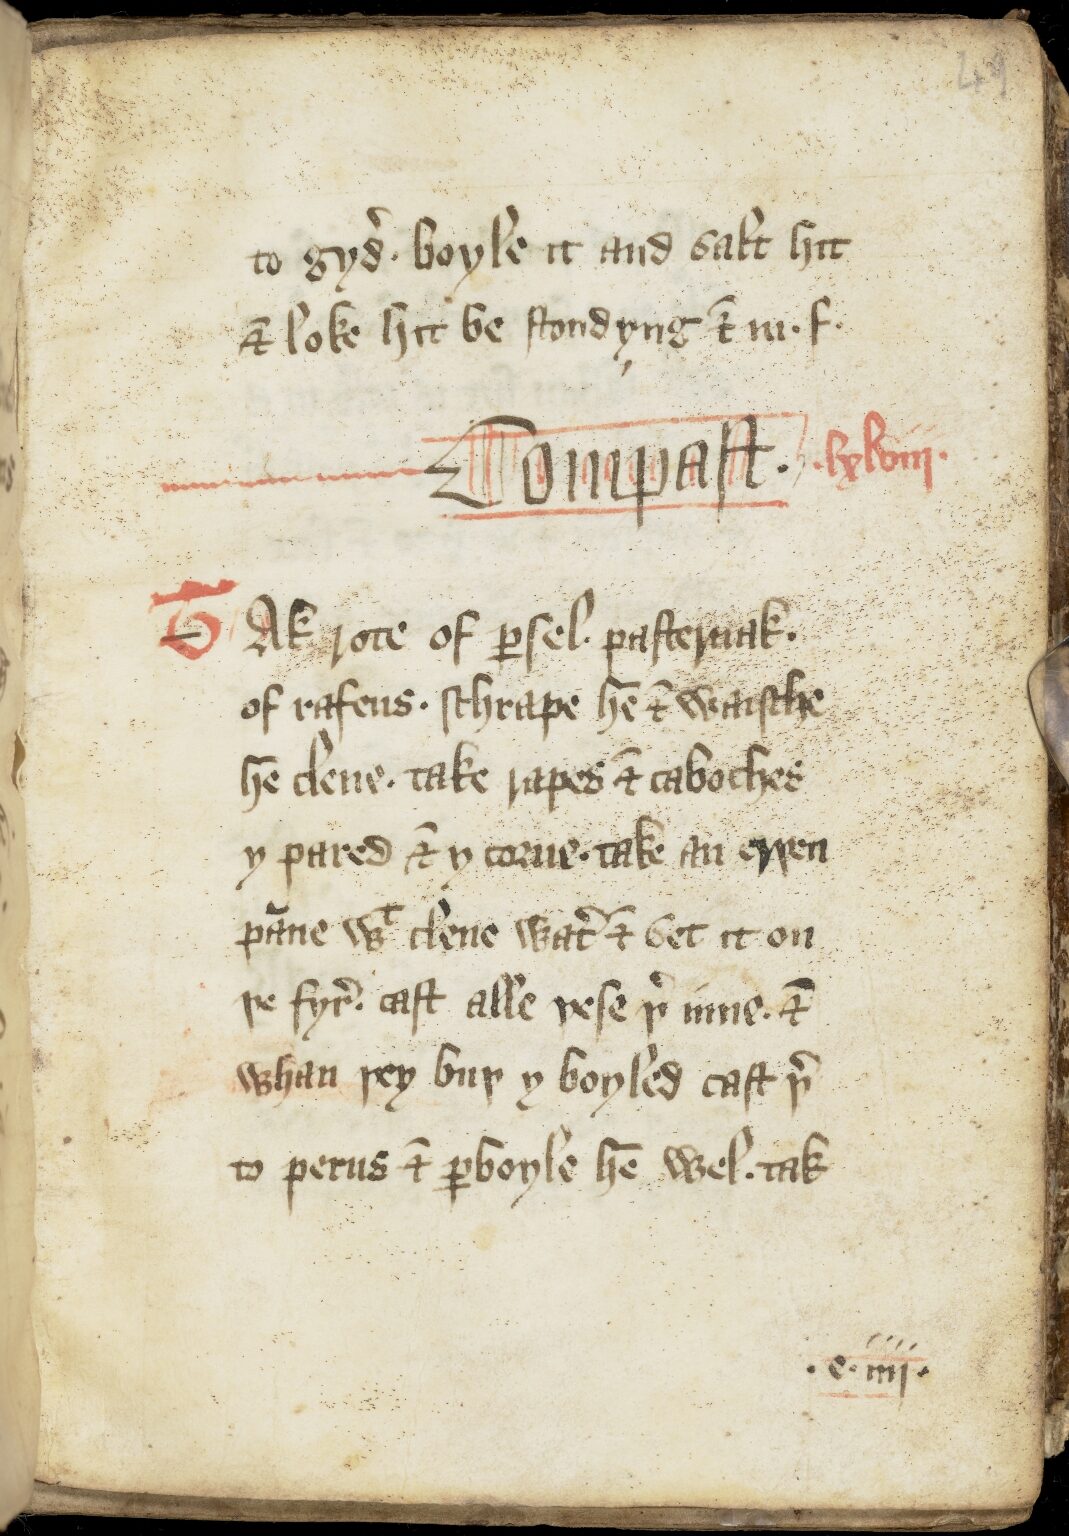 49
to gyd̉. boyle it and salt hit
⁊ loke hit be stondyng ⁊ m. f.
Compast. .lxlviii.
TAk rote of ꝑsel. pasternak.
of rafens. schrape hē ⁊ waische
hē clene. take rapes ⁊ caboches
y pared ⁊ y corue. take an erþen
pāne wᵗ clene wat̉ ⁊ set it on
þe fyr̉. cast alle þese þ̉ inne. ⁊
whan þey buþ y boyled cast þ̉
to perus ⁊ ꝑboyle hē wel. tak
.e. iiii.